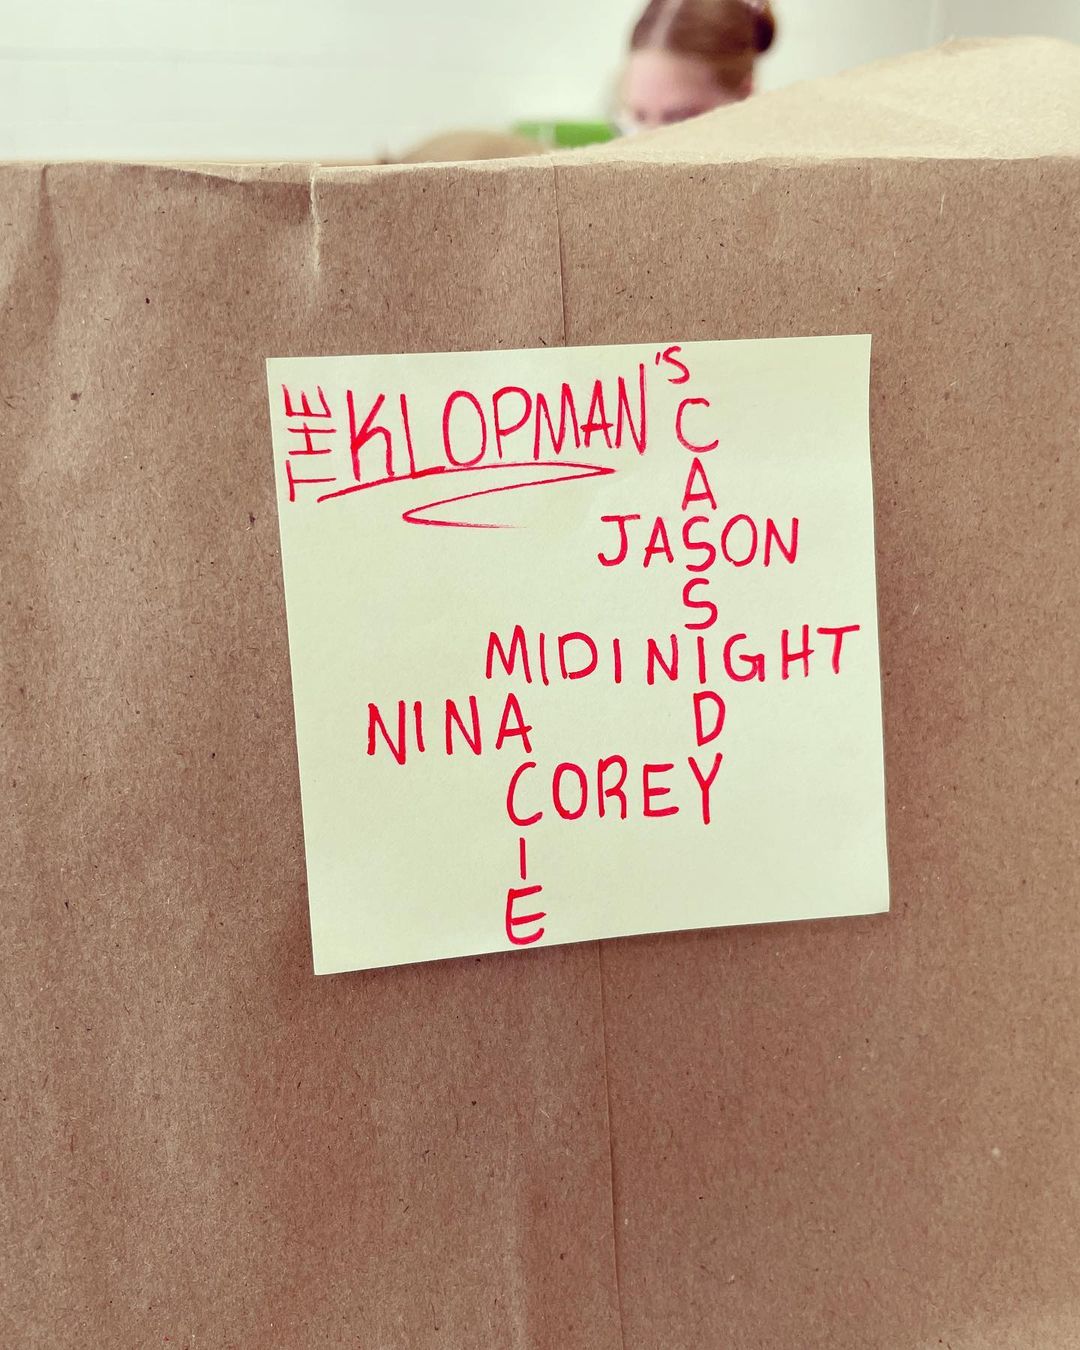 THE KLOPMAN'S
CASSIDY
JASON
MIDINIGHT
NINA
MACIE
COREY